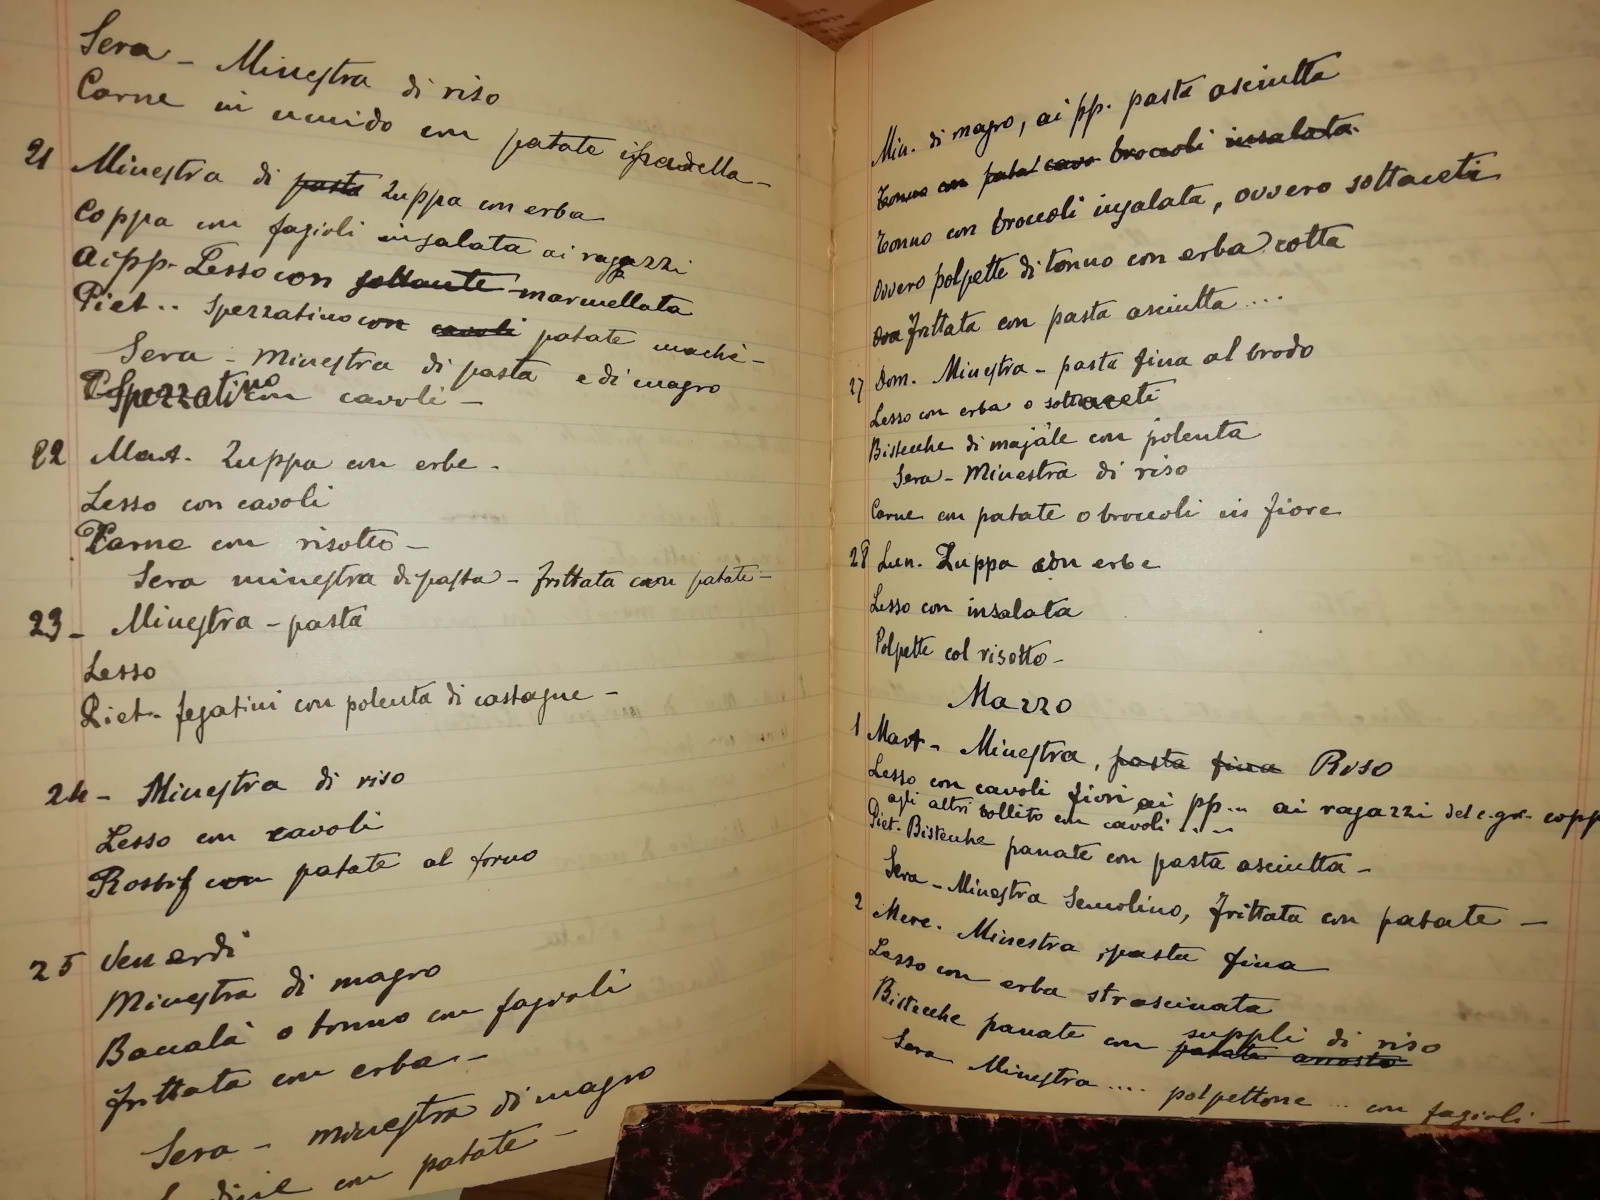 Sera - Minestra di riso
Carne in umido con patate
21 Minestra di pasta Zuppa con erba
Coppa con fagioli insalata ai ragazzi
Ai pp. Lesso con marmellata
Piet.. Spezzatino con cavoli patate maché -
Sera - Minestra di pasta e di magro
Spezzatino con cavoli -
22 Mart. Zuppa con erbe -
Lesso con cavoli
Carne con risotto -
Sera minestra di pasta - frittata con patate -
23 - Minestra - pasta
Lesso
Piet. fegatini con polenta di castagne -
24 - Minestra di riso
Lesso con cavoli
Rosbif con patate al forno
25 Venerdi
Minestra di magro
Baccalà o tonno con fagiuoli
frittata con erba.. -
Sera - minestra di magro
con patate -
Min. di magro, ai pp. pasta asciutta
Tonno con patat cavo broccoli insalata.
Tonno con broccoli insalata, ovvero sottaceti
Ovvero polpette di tonno con erba cotta
Ova frittata con pasta asciutta ....
27 Dom. Minestra - pasta fina al brodo
Lesso con erba o sottaceti
Bistecche di majale con polenta
Sera - Minestra di riso
Carne con patate o broccoli in fiore
28 Lun. Zuppa con erbe
Lesso con insalata
Polpette col risotto -
Marzo
1 Mart - Minestra, pasta fina Riso
Lesso con cavoli fiori ai pp... ai ragazzi del c.gr. copp
agli altri bollito con cavoli . . -
Piet. Bistecche panate con pasta asciutta -
Sera - Minestra Semolino, frittata con patate -
2 Merc. Minestra, pasta fina
Lesso con erba strascinata
Bistecche panate con patate arrosto suppli di riso
Sera Minestra .... polpettone ... con fagioli -